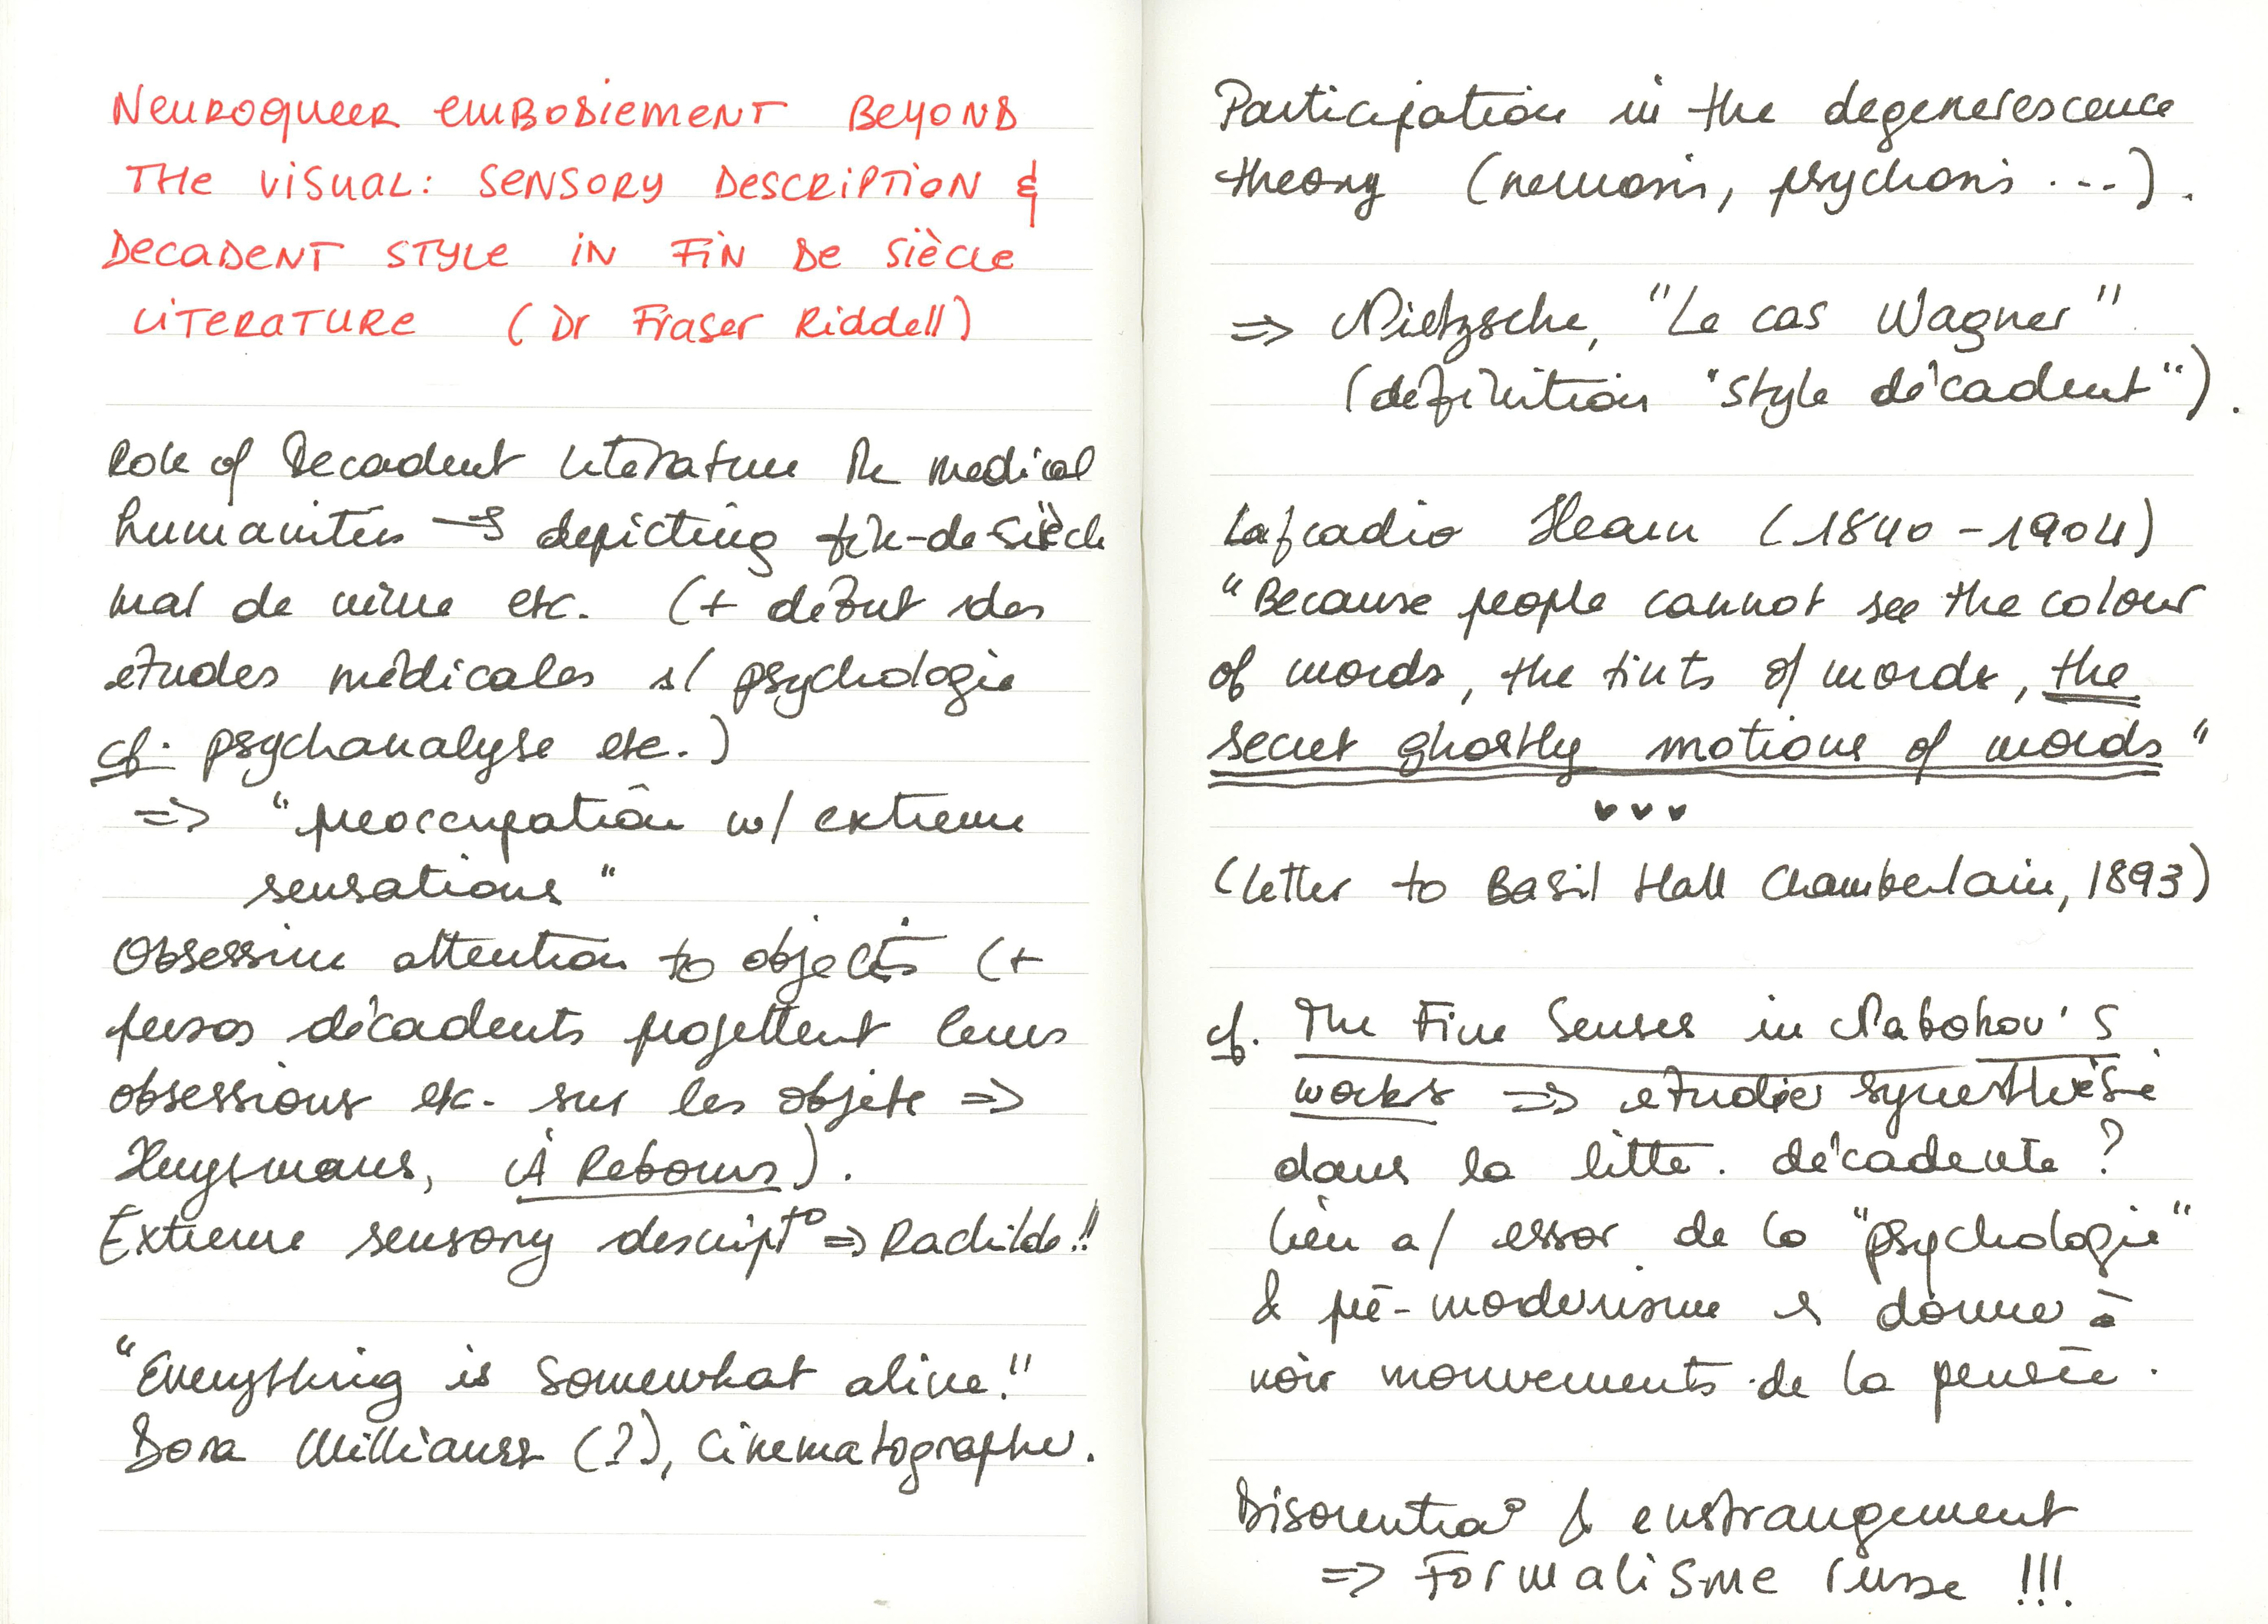 NEUROQUEER EMBODIEMENT BEYOND
THE VISUAL: SENSORY DESCRIPTION &
DECADENT STYLE IN FIN DE SIÈCLE
LITERATURE (Dr Fraser Riddell)
Role of Decadent literature in medical
humanities → depicting fin-de-siècle
mal de vivre etc. (+ début des
études médicales s/ psychologie
cf. psychanalyse etc.)
=> "preoccupation w/ extreme
sensations"
Obsessive attention to objects (+
persos décadents projettent leurs
obsessions etc. sur les objets =>
Huysmans, À Rebours).
Extreme sensory descript° => Rachilde!!
"Everything is somewhat alive."
Dora (?), cinematographer.
Participation in the degenerescence
theory (nevrosis, psychosis ...).
=> Nietzsche, "Le cas Wagner"
(définition "style décadent").
Lafcadio Hearn (1840-1904)
"Because people cannot see the colour
of words, the tints of words, the
secret ghostly motions of words"
♥♥♥
(letter to Basil Hall Chamberlain, 1893)
cf. The Five Senses in Nabokov's
works => étudier synesthésie
dans la litté. décadente?
lien a/ essor de la "psychologie"
& pré-modernisme → donner à
voir mouvements de la pensée.
Disorientia° & enstrangement
=> Formalisme russe !!!